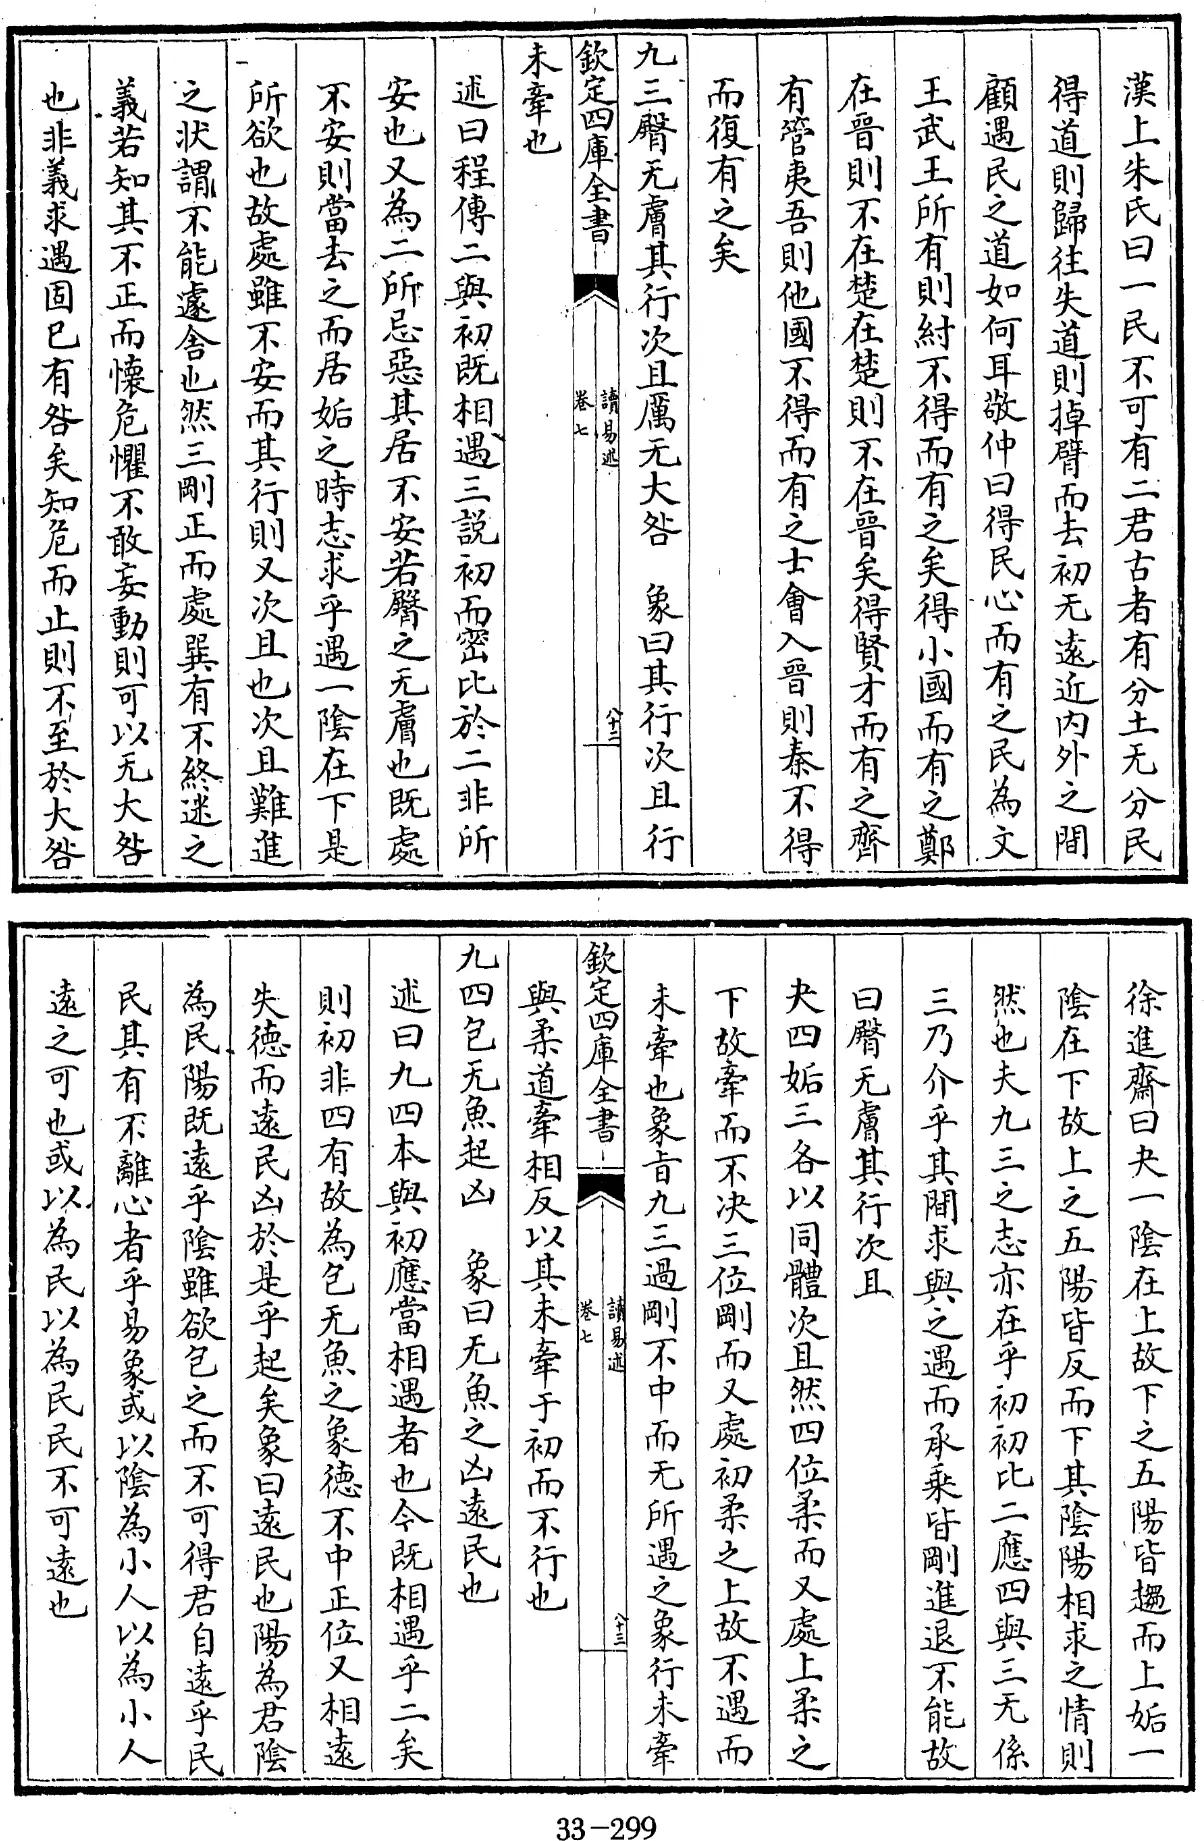 漢上朱氏曰一民不可有二君古者有分土无分民
得道則歸往失道則掉臂而去初无遠近内外之間
顧遇民之道如何耳敬仲曰得民心而有之民為文
王武王所有則紂不得而有之矣得小國而有之鄭
在晉則不在楚在楚則不在晉矣得賢才而有之齊
有管夷吾則他國不得而有之士會入晉則秦不得
而復有之矣
九三臀无膚其行次且厲无大咎　象曰其行次且行
欽定四庫全書
讀易述
卷七
八十二
未牽也
述曰程傳二與初既相遇三説初而密比於二非所
安也又為二所忌惡其居不安若臀之无膚也既處
不安則當去之而居姤之時志求乎遇一隂在下是
所欲也故處雖不安而其行則又次且也次且難進
之状謂不能遽舍也然三剛正而處巽有不終迷之
義若知其不正而懐危懼不敢妄動則可以无大咎
也非義求遇固已有咎矣知危而止則不至於大咎
徐進齋曰夬一隂在上故下之五陽皆趨而上姤一
隂在下故上之五陽皆反而下其隂陽相求之情則
然也夫九三之志亦在乎初初比二應四與三无係
三乃介乎其間求與之遇而承乗皆剛進退不能故
曰臀无膚其行次且
夬四姤三各以同體次且然四位柔而又處上柔之
下故牽而不决三位剛而又處初柔之上故不遇而
未牽也象旨九三過剛不中而无所遇之象行未牽
欽定四庫全書
讀易述
卷七
八十三
與柔道牽相反以其未牽于初而不行也
九四包无魚起凶　象曰无魚之凶遠民也
述曰九四本與初應當相遇者也今既相遇乎二矣
則初非四有故為包无魚之象德不中正位又相遠
失德而遠民凶於是乎起矣象曰遠民也陽為君隂
為民陽既遠乎隂雖欲包之而不可得君自遠乎民
民其有不離心者乎易象或以隂為小人以為小人
遠之可也或以為民以為民民不可遠也
33-299